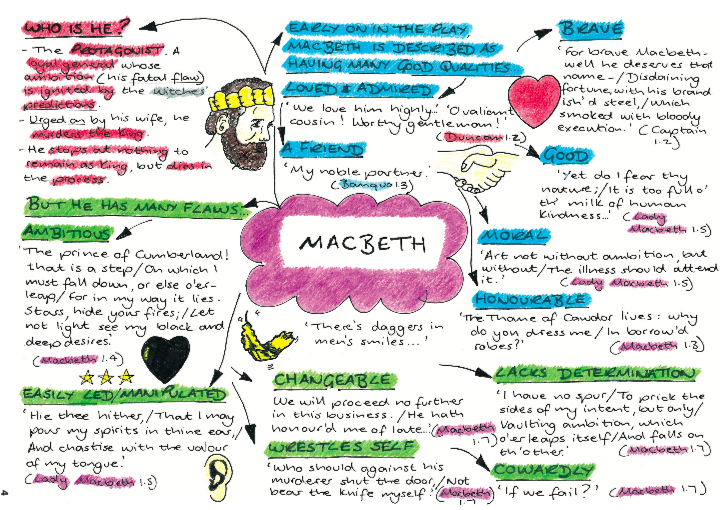 WHO IS HE?
- The PROTAGONIST. A
loyal general whose
ambition (his fatal flaw)
is ignited by the witches'
predictions.
- Urged on by his wife, he
murders the king
- He stops at nothing to
remain as king, but dies in
the process.
EARLY ON IN THE PLAY,
MACBETH IS DESCRIBED AS
HAVING MANY GOOD QUALITIES
LOVED & ADMIRED
'We love him highly.' 'O valiant
cousin! Worthy gentleman!'
(Duncan 1.2)
A FRIEND
'My noble partner.'
(Banquo 1.3)
BRAVE
'For brave Macbeth-
well he deserves that
name-/Disdaining
fortune, with his brand
ish'd steel,/which
smoked with bloody
execution.' (Captain
1.2)
GOOD
'Yet do I fear thy
nature;/It is too full o'
th' milk of human
kindness...' (Lady
Macbeth 1.5)
MORAL
'Art not without ambition, but
without/The illness should attend
it.' (Lady Macbeth 1.5)
HONOURABLE
'The Thane of Cawdor lives: why
do you dress me/In borrow'd
robes?' (Macbeth 1.3)
MACBETH
BUT HE HAS MANY FLAWS...
AMBITIOUS
'The prince of Cumberland!
that is a step/On which I
must fall down, or else o'er-
leap/For in my way it lies.
Stars, hide your fires;/Let
not light see my black and
deep desires.'
(Macbeth 1.4)
'There's daggers in
men's smiles...'
EASILY LED/MANIPULATED
'Hie thee hither,/That I may
pour my spirits in thine ear,/
And chastise with the valour
of my tongue.'
(Lady Macbeth 1.5)
CHANGEABLE
We will proceed no further
in this business./He hath
honour'd me of late...' (Macbeth
1.7)
WRESTLES SELF
'Who should against his
murderer shut the door,/Not
bear the knife myself.' (Macbeth
1.7
LACKS DETERMINATION
'I have no spur/To prick the
sides of my intent, but only/
Vaulting ambition, which
o'erleaps itself/And falls on
th'other.' (Macbeth 1.7)
COWARDLY
'If we fail?' (Macbeth 1.7)